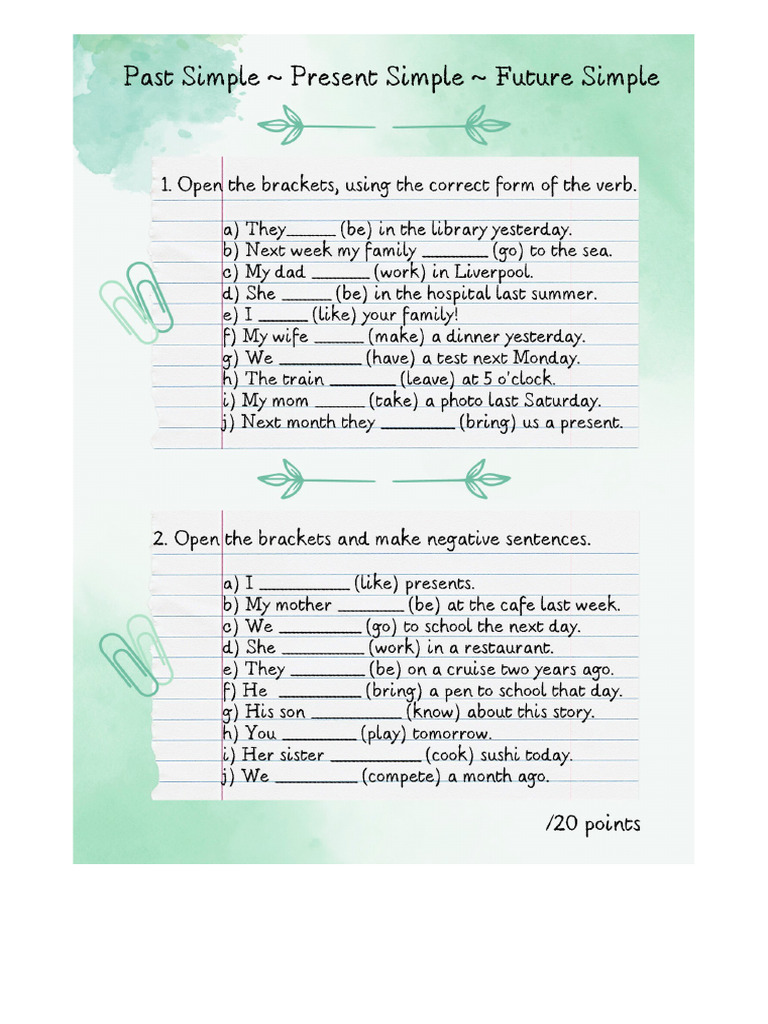 Past Simple ~ Present Simple ~ Future Simple
1. Open the brackets, using the correct form of the verb.
a) They______ (be) in the library yesterday.
b) Next week my family ________ (go) to the sea.
c) My dad _______ (work) in Liverpool.
d) She ______ (be) in the hospital last summer.
e) I ______ (like) your family!
f) My wife ______ (make) a dinner yesterday.
g) We __________ (have) a test next Monday.
h) The train ________ (leave) at 5 o'clock.
i) My mom ______ (take) a photo last Saturday.
j) Next month they _________ (bring) us a present.
2. Open the brackets and make negative sentences.
a) I ___________ (like) presents.
b) My mother ________ (be) at the cafe last week.
c) We __________ (go) to school the next day.
d) She __________ (work) in a restaurant.
e) They _________ (be) on a cruise two years ago.
f) He __________ (bring) a pen to school that day.
g) His son ___________ (know) about this story.
h) You _________ (play) tomorrow.
i) Her sister ___________ (cook) sushi today.
j) We __________ (compete) a month ago.
/20 points